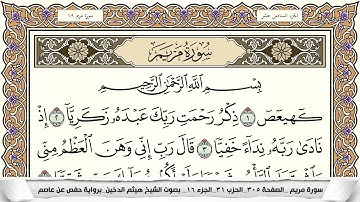 الجزء السادس عشر
سورة مريم ١٩
سُورَةُ مَرْيَمَ
بِسْمِ اللَّهِ الرَّحْمَٰنِ الرَّحِيمِ
كٓهيعٓصٓ ١ ذِكْرُ رَحْمَتِ رَبِّكَ عَبْدَهُۥ زَكَرِيَّآ ٢ إِذْ
نَادَىٰ رَبَّهُۥ نِدَآءً خَفِيًّا ٣ قَالَ رَبِّ إِنِّى وَهَنَ ٱلْعَظْمُ مِنِّى
سورة مريم _الصفحة ٣٠٥_ الحزب ٣١_ الجزء ١٦_ بصوت الشيخ هيثم الدخين_ برواية حفص عن عاصم